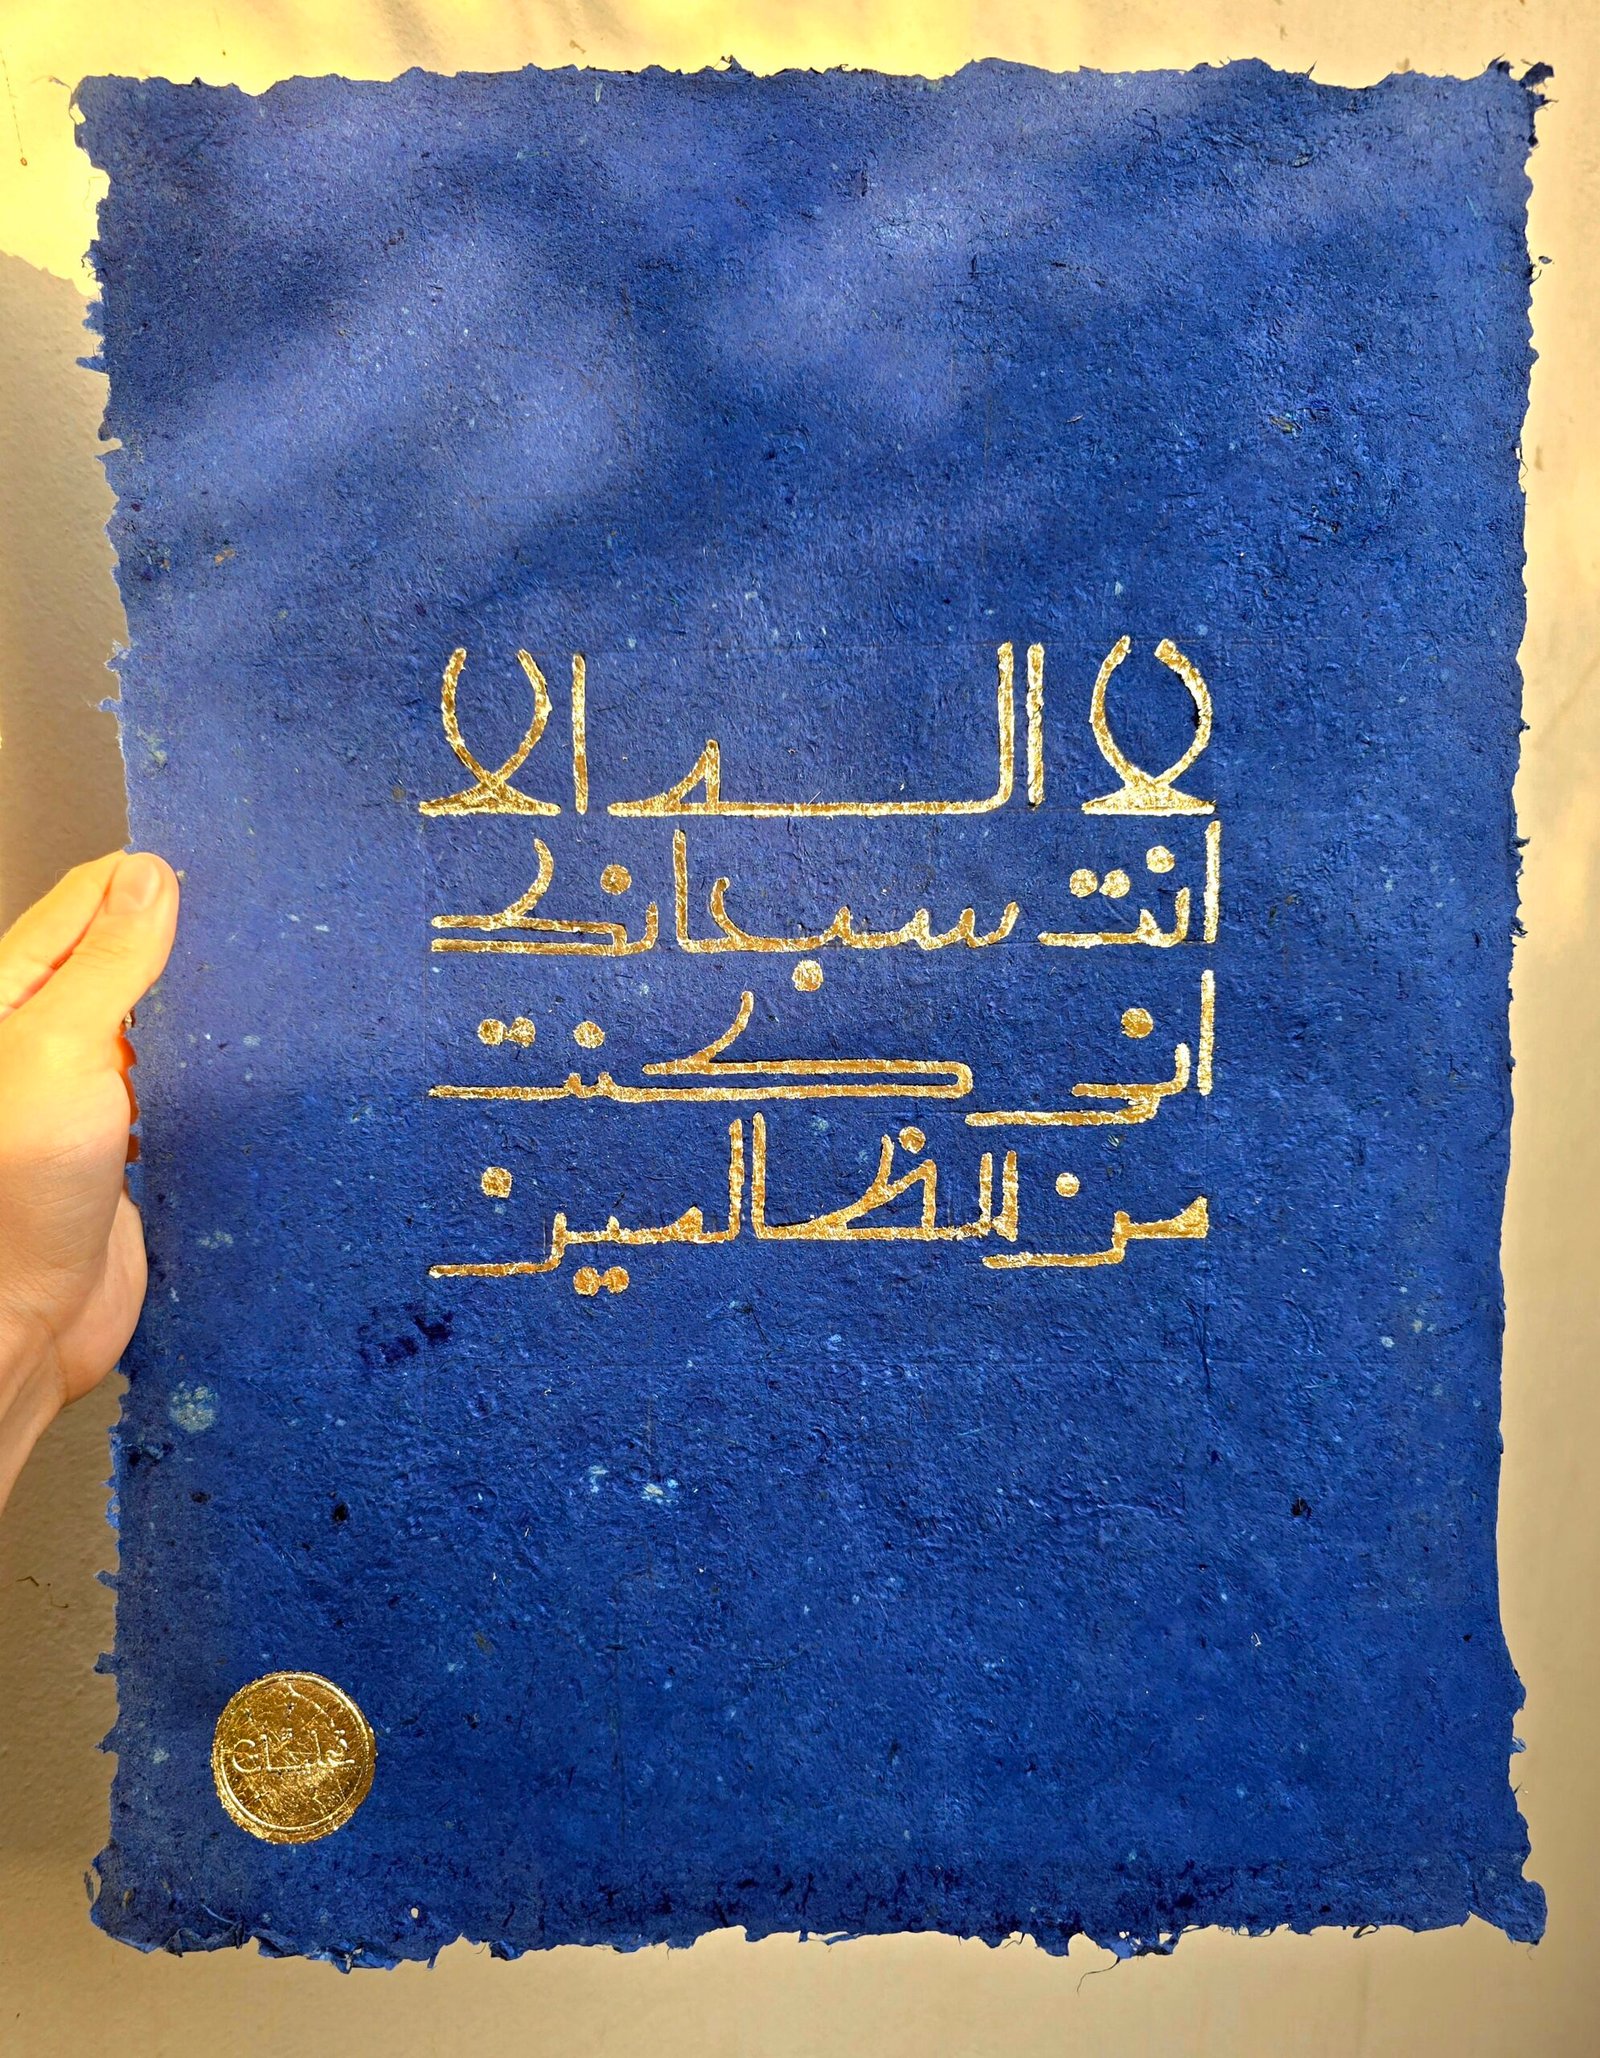 لا اله الا
انت سبحانك
انى كنت
من الظالمين